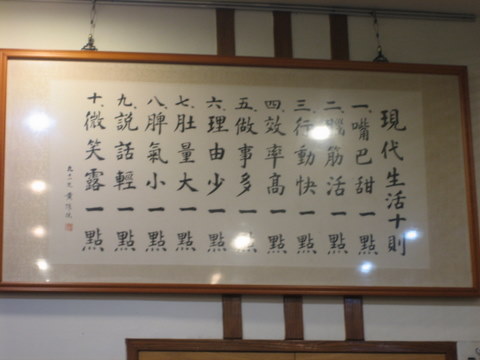 現代生活十則
一、嘴巴甜一點
二、腦筋活一點
三、行動快一點
四、效率高一點
五、做事多一點
六、理由少一點
七、肚量大一點
八、脾氣小一點
九、說話輕一點
十、微笑露一點